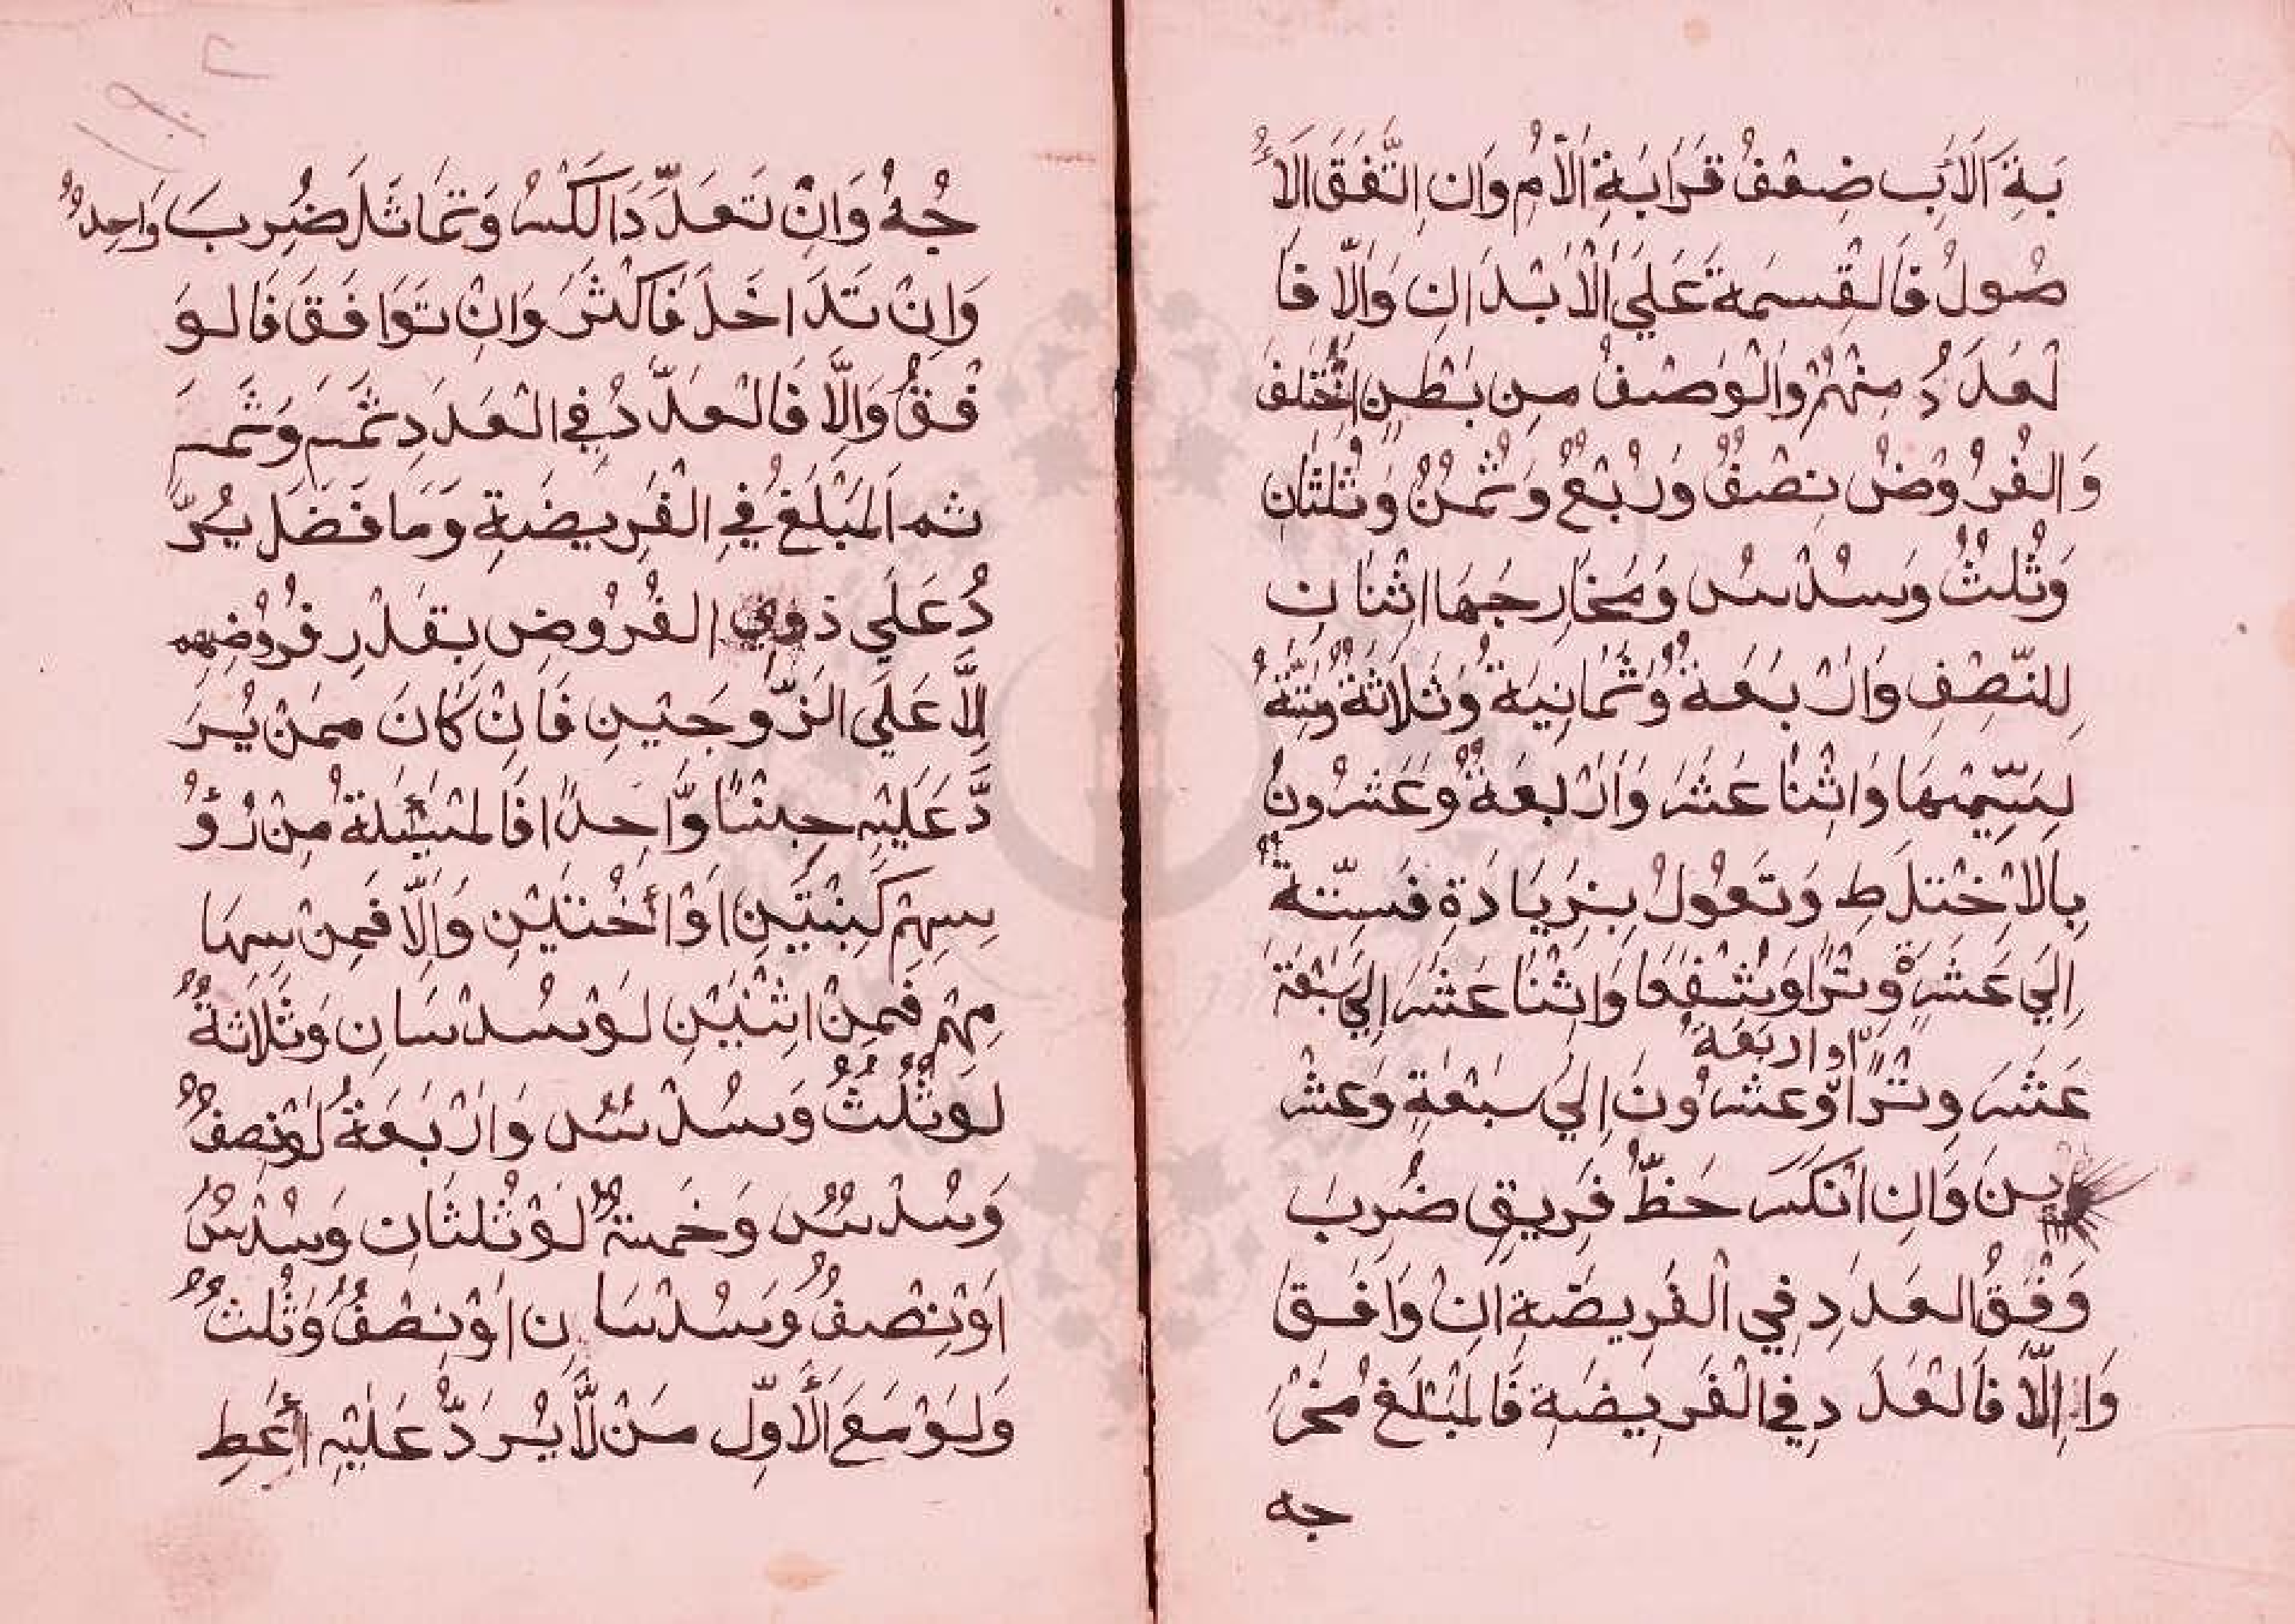 بَةِ اَلَابِ ضِعْفُ قَرَابَةِ الْاُمِّ وَاِنِ اتَّفَقَ الْاُ
صُولُ فَالْقِسمَةُ عَلَي الْاَبْدَانِ وَاِلَّا فَا
لْعَدَدُ مِنْهُمْ وَالْوَصْفُ مِنْ بَطْنٍ اخْتَلَفَ
وَالفُرُوْضُ نِصْفٌ وَرُبْعٌ وَثُمْنٌ وَثُلثَانِ
وَثُلثٌ وَسُدْسٌ وَمَخَارِجَهَا اِثْنَانِ
لِلنِّصْفِ وَاَرْبَعَةٌ وَثَمَانِيَةٌ وَثَلَاثَةٌ وَسِتَّةٌ
لِسَمِيِّهَا وَاثْنَا عَشَرَ وَاَرْبعَةٌ وَعَشرُونَ
بِالْاِخْتلَاطِ وَتَعُوْلُ بِزِيَادَةٍ فَسِتّةٌ
اِلَي عَشَرَةٍ وِتْرًا وَشَفْعًا وَاثْنَا عَشَرَ اِلَي سَبْعَةَ
عَشَرَ وِتْرًا وَّعشرُونَ اِلَي سَبْعَةٍ وَعشْرِ
اواربَعَةٌ
يْنَ وَاِنِ انْكَسَرَ حَظُّ فَرِيقٍ ضُرِبَ
وَفْقُ الْعَدَدِ فِي الْفَرِيضَةِ اِنْ وَافَقَ
وَاِلَّا فَالْعَدَدِ فِي الْفَرِيضَةِ فَالْمَبْلَغُ مَخْرَ
جه
١٠٢
جُهُ وَاِنْ تَعَدَّدَ الْكَسْرُ وَتَمَاثَلَ ضُرِبَ وَاحِدٌ
وَاِنْ تَدَاخَلَ فَاَكْثَرَ وَاِنْ تَوَافَقَ فَالوَ
فْقُ وَاِلَّا فَالْعَدَدُ فِي الْعَدَدِ ثُمَّ وَثُمَّ
ثم الْمَبْلَغُ فِي الْفَرِيضَةِ وَمَا فَضَلَ يُرَ
دُّ عَلَي ذَوِي الفُرُوضِ بِقَدْرِ فُرُوْضِهِم
اِلَّا عَلَي الزَّوجَيْنِ فَاِنْ كَانَ مَمنْ يُرَ
دُّ عَلَيْهِ جِنْسًا وَّاحِدًا فَالمَسْئَلَةُ مِنْ رُؤُ
سِهِمْ كَبِنْتَيْنِ اَوْ اُخْتَيْنِ وَاِلَّا فَمِنْ سِهَا
مِهِمْ فَمِنْ اثْنَيْنِ لَوْ سُدسَانِ وَثَلَاثَةٌ
لَوْ ثُلُثٌ وَسُدْسٌ وَاَرْبَعَةٌ لَوْ نِصفٌ
وَسُدْسٌ وَخَمسَةٌ لَوْ ثُلثَانِ وَسُدْسٌ
اَوْ نِصْفٌ وَسُدْسَانِ اَوْ نِصْفٌ وَثُلثٌ
وَلَوْ مَعَ الْاَوَّلِ مَنْ لَّا يُرَدُّ عَلَيْهِ اُعْطِ